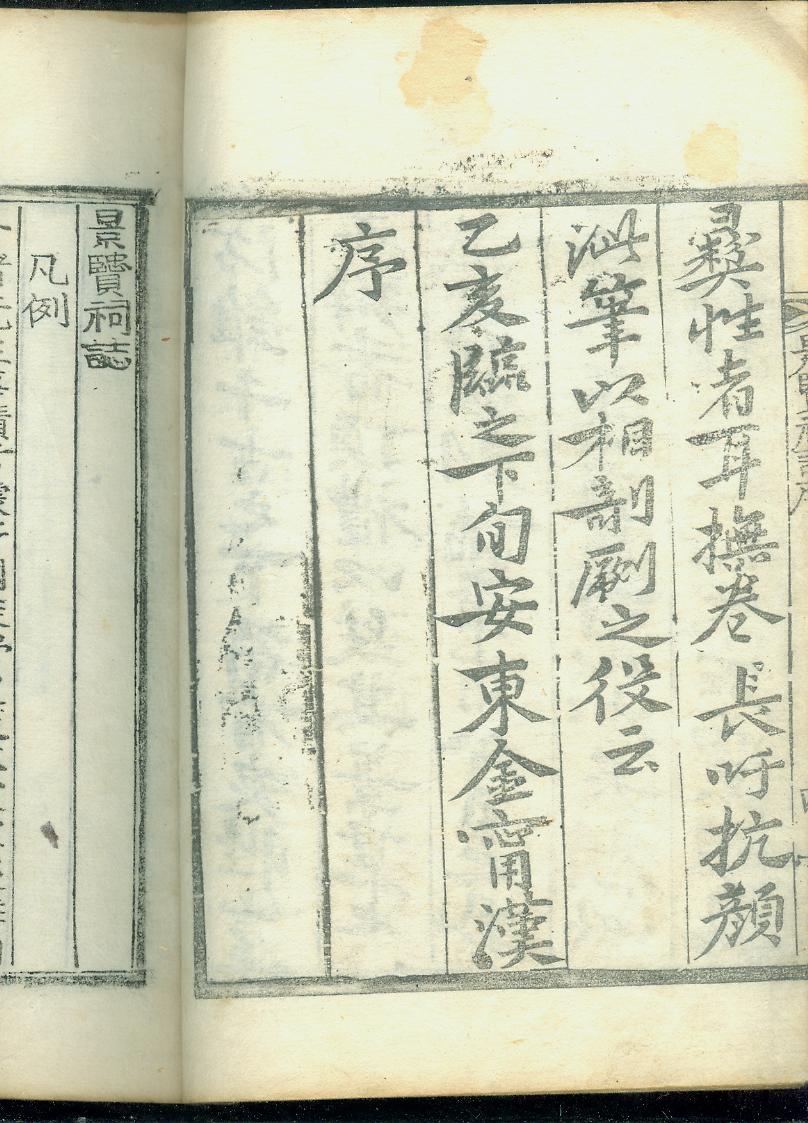 彛性者耳撫卷長吁抗顔
泚筆以相剞劂之役云
乙亥臨之下旬安東金甯漢
序
景賢祠誌
凡例